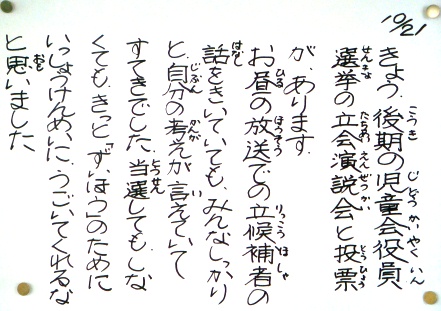 10/21
きょう、後期の児童会役員
選挙の立会演説会と投票
が、あります。
お昼の放送での立候補者の
話をきいていても、みんなしっかり
と、自分の考えが言えていて
すてきでした。当選しても、しな
くても、きっと「ずいほう」のために
いっしょうけんめいに、うごいてくれるな
と思いました。